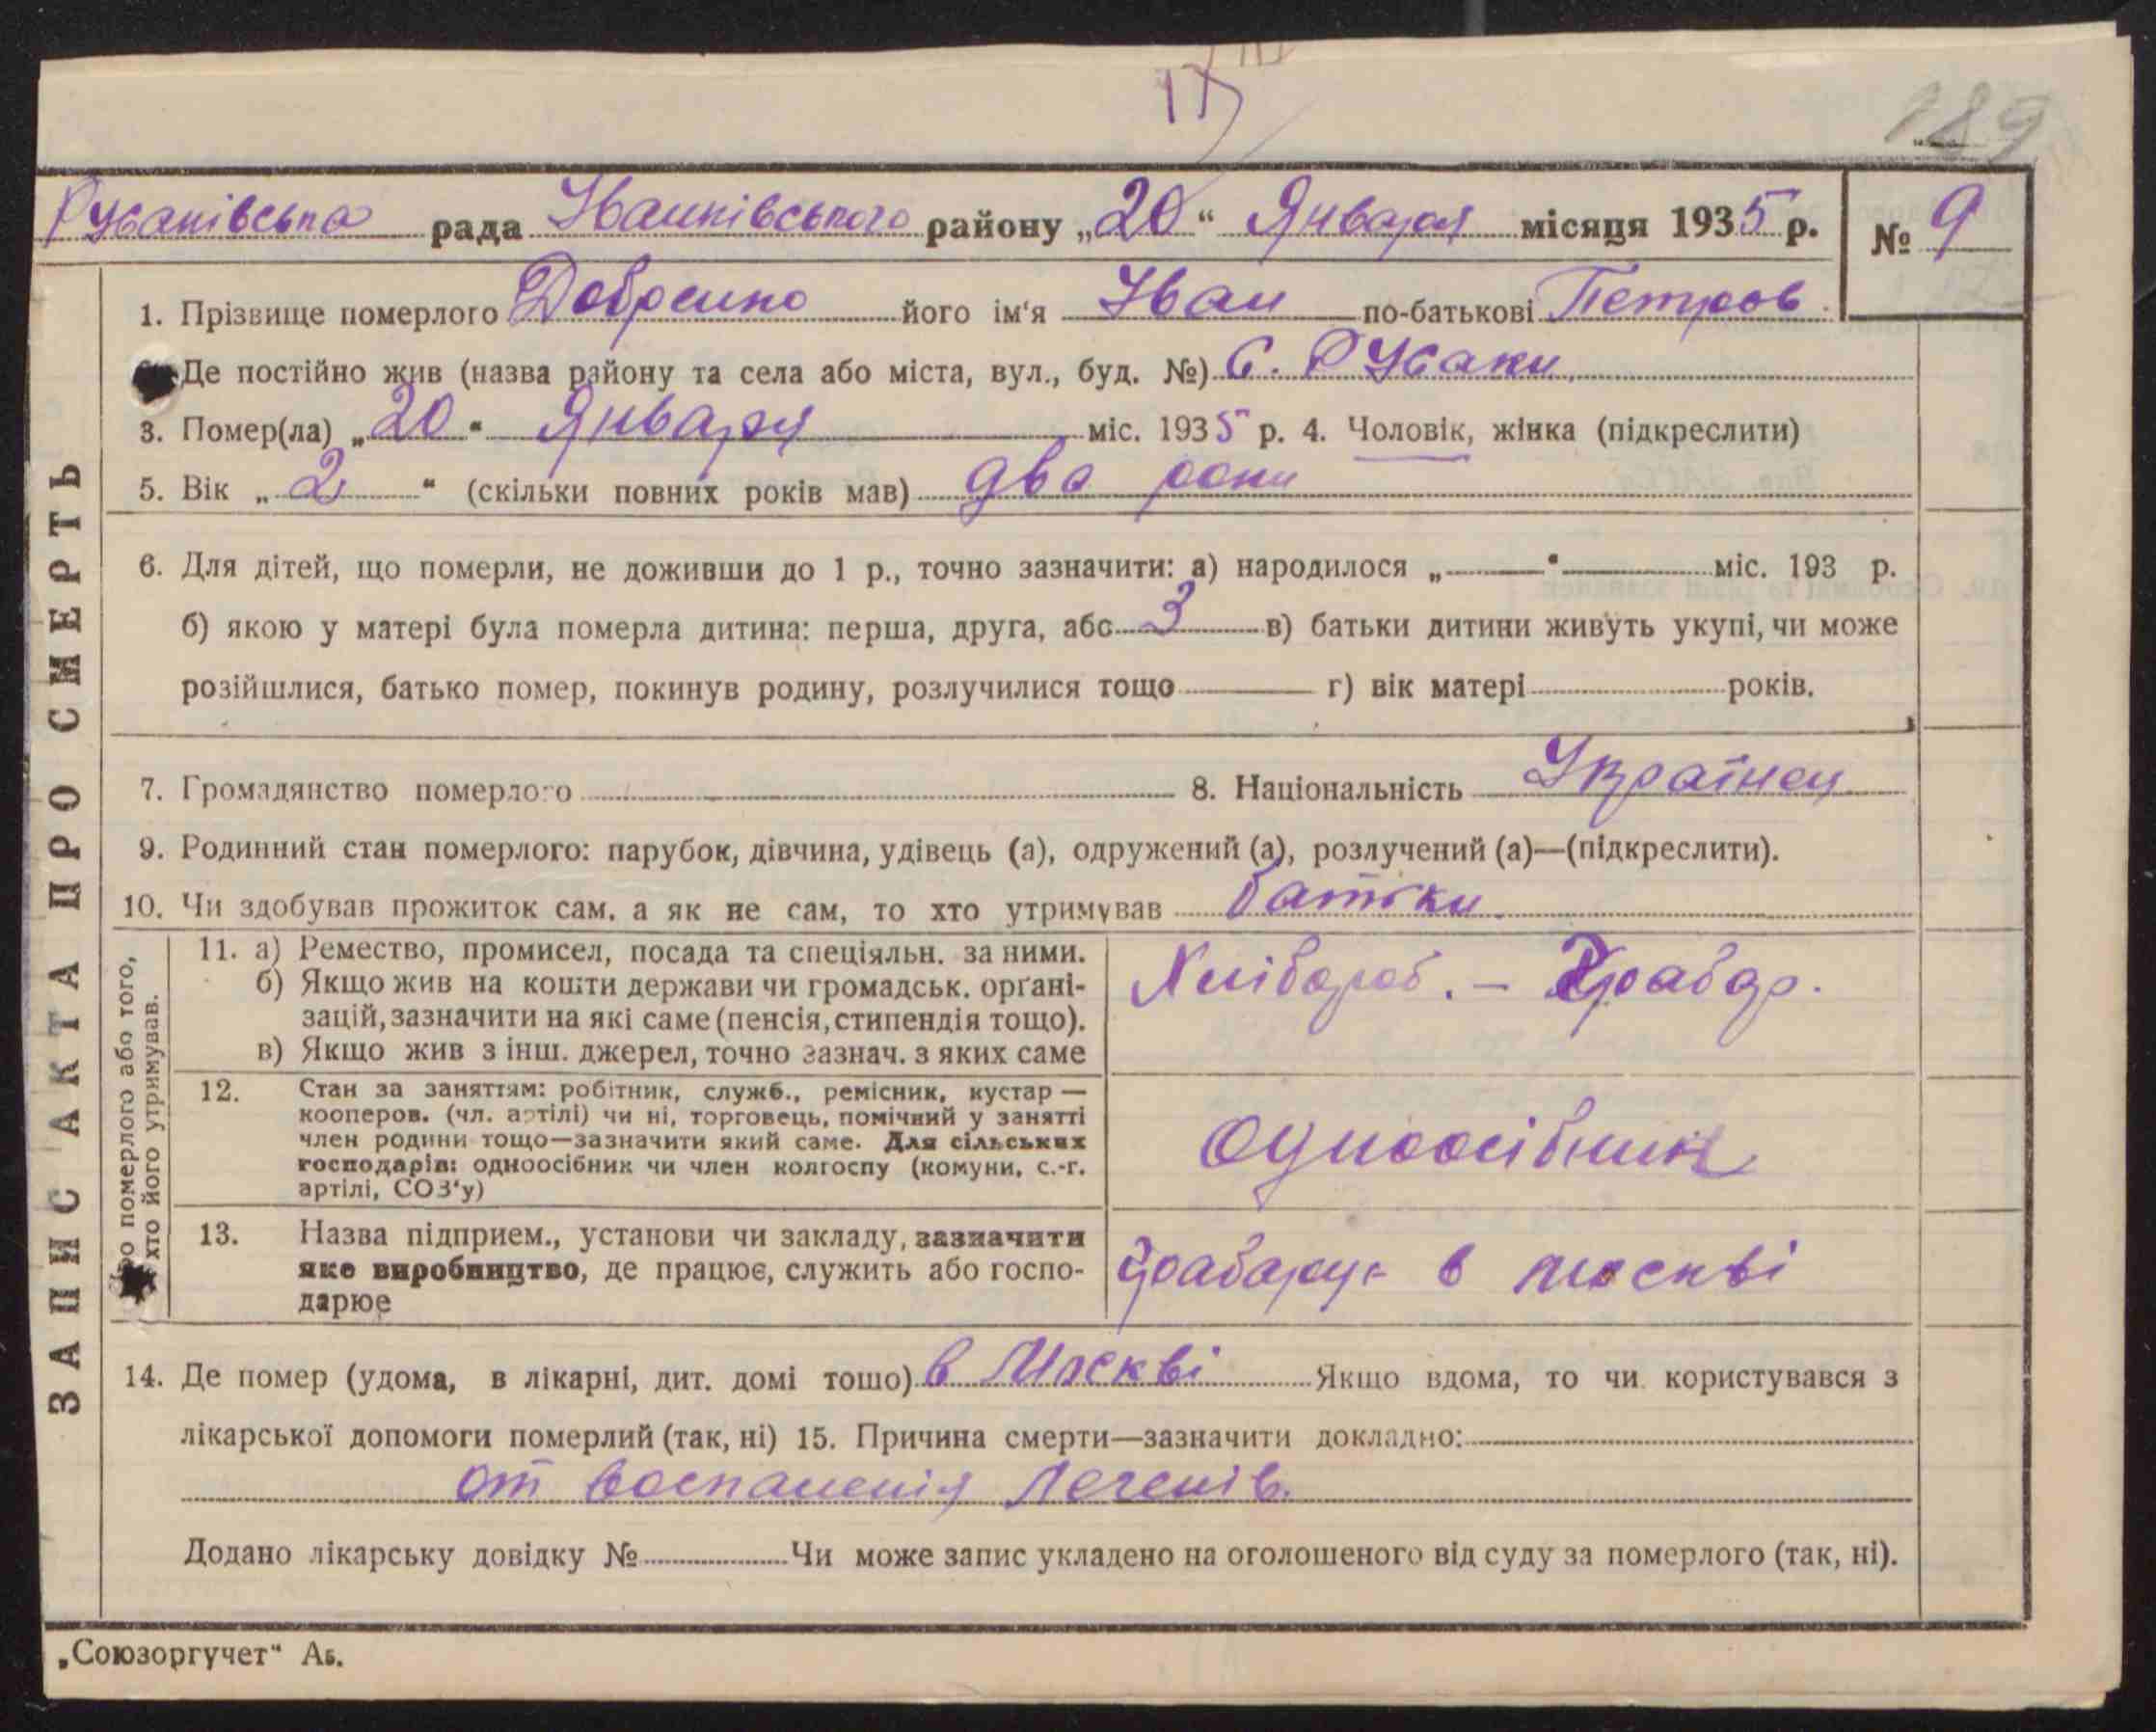 189
Русаківська рада Іванківського району „20“ Января місяця 1935 р. № 9
1. Прізвище померлого Добренко його ім'я Іван по-батькові Петров
Де постійно жив (назва району та села або міста, вул., буд. №) С. Русаки
3. Помер(ла) „20“ Января міс. 1935 р. 4. Чоловік, жінка (підкреслити)
5. Вік „2“ (скільки повних років мав) два роки
6. Для дітей, що померли, не доживши до 1 р., точно зазначити: а) народилося „—“— міс. 193 р.
б) якою у матері була померла дитина: перша, друга, або 3 в) батьки дитини живуть укупі, чи може
розійшлися, батько помер, покинув родину, розлучилися тощо — г) вік матері років.
7. Громадянство померлого 8. Національність Українец
9. Родинний стан померлого: парубок, дівчина, удівець (а), одружений (а), розлучений (а)—(підкреслити).
10. Чи здобував прожиток сам, а як не сам, то хто утримував батьки
ро померлого або того, хто його утримував.
11. а) Ремество, промисел, посада та спеціяльн. за ними.
б) Якщо жив на кошти держави чи громадськ. органі-
зацій, зазначити на які саме (пенсія, стипендія тощо).
в) Якщо жив з інш. джерел, точно зазнач. з яких саме
Хлібороб. – Грабар.
12. Стан за заняттям: робітник, служб., ремісник, кустар —
кооперов. (чл. артілі) чи ні, торговець, помічний у занятті
член родини тощо—зазначити який саме. Для сільських
господарів: одноосібник чи член колгоспу (комуни, с.-г.
артілі, СОЗ'у)
одноосібник
13. Назва підприєм., установи чи закладу, зазначити
яке виробництво, де працює, служить або госпо-
дарює
грабарує в москві
14. Де помер (удома, в лікарні, дит. домі тощо) в Москві Якщо вдома, то чи користувався з
лікарської допомоги померлий (так, ні) 15. Причина смерти—зазначити докладно:
от воспаленія легенів.
Додано лікарську довідку № Чи може запис укладено на оголошеного від суду за померлого (так, ні).
ЗАПИС АКТА ПРО СМЕРТЬ
„Союзоргучет“ Аб.